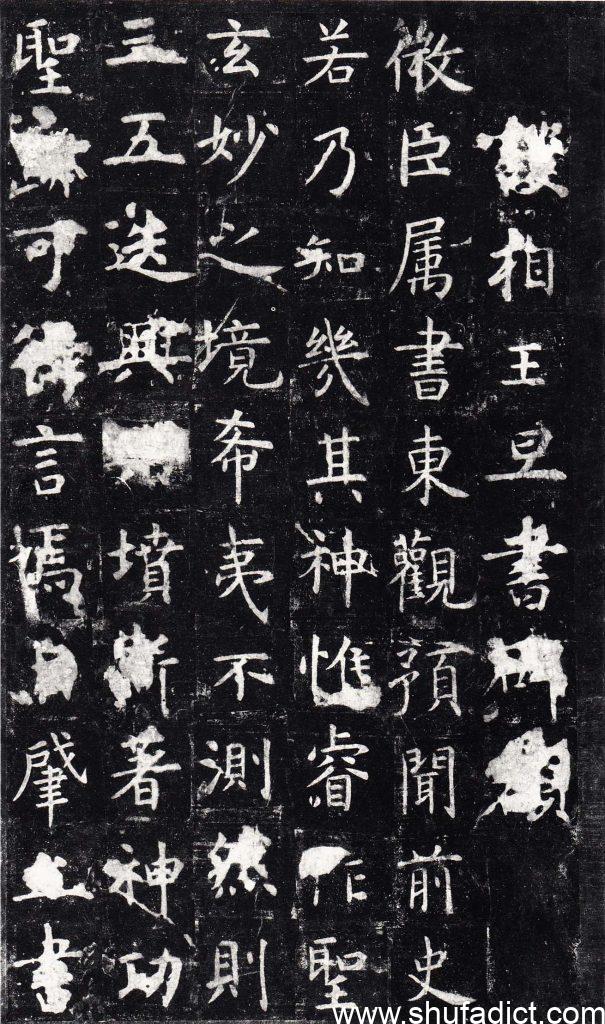 護相王旦書碑額
微臣属書東觀預聞前史
若乃知幾其神惟睿作聖
玄妙之境希夷不測然則
三五迭興墳斯著神功
聖跡可得言焉自肇立書
www.shufadict.com